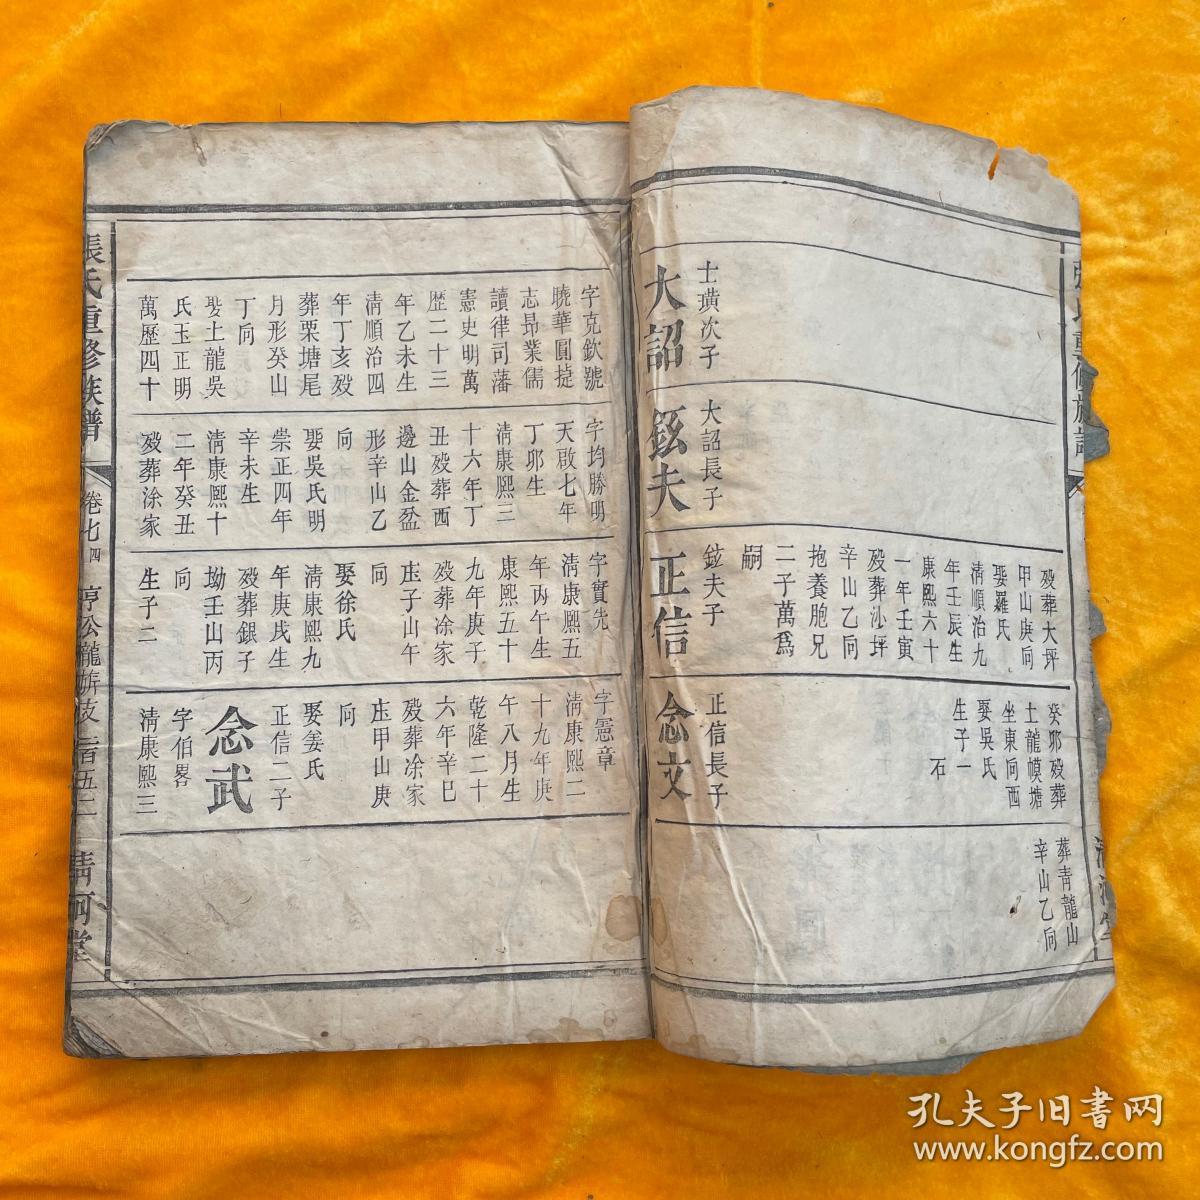 殁葬大坪
甲山庚向
娶羅氏
清順治九
年壬辰生
康熙六十
一年壬寅
殁葬沁坪
辛山乙向
抱養胞兄
二子萬爲
嗣
癸邜殁葬
土龍幙塘
坐東向西
娶吳氏
生子一
石
葬青龍山
辛山乙向
士璜次子
大詔
大詔長子
鉉夫
鉉夫子
正信
正信長子
念文
字克欽號
曉華圓㨗
志昂業儒
讀律司藩
憲史明萬
歴二十三
年乙未生
清順治四
年丁亥殁
葬栗塘尾
月形癸山
丁向
娶土龍吳
氏玉正明
萬歷四十
字均勝明
天啟七年
丁邜生
清康熙三
十六年丁
丑殁葬西
邊山金盆
形辛山乙
向
娶吳氏明
崇正四年
辛未生
清康熙十
二年癸丑
殁葬涂家
字實先
清康熙五
年丙午生
康熙五十
九年庚子
殁葬涂家
庄子山午
向
娶徐氏
清康熙九
年庚戌生
殁葬銀子
坳壬山丙
向
生子二
字憲章
清康熙二
十九年庚
午八月生
乾隆二十
六年辛巳
殁葬涂家
庄甲山庚
向
娶姜氏
正信二子
念武
字伯畧
清康熙三
張氏重修族譜
卷七
四
亨公龍㫌枝
二百五二
清河堂
孔夫子旧书网
www.kongfz.com